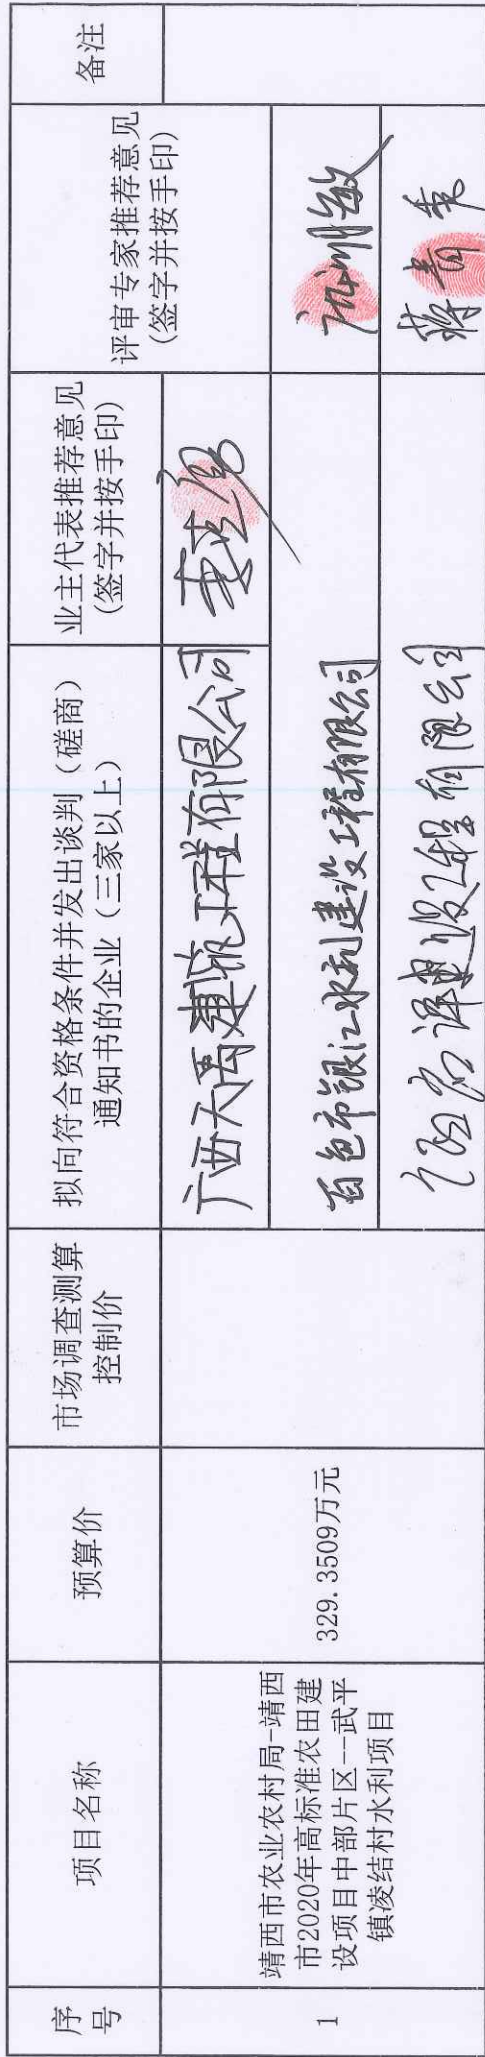 序
号
项目名称
预算价
市场调查测算
控制价
拟向符合资格条件并发出谈判（磋商）
通知书的企业（三家以上）
业主代表推荐意见
(签字并按手印)
评审专家推荐意见
(签字并按手印)
备注
1
靖西市农业农村局-靖西
市2020年高标准农田建
设项目中部片区--武平
镇凌结村水利项目
329.3509万元
广西大禹建筑工程有限公司
百色市银江水利建设工程有限公司
建设工程有限公司
蒋青秀